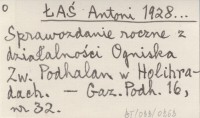 ŁAŚ Antoni 1928...
Sprawozdanie roczne z
działalności Ogniska
Zw. Podhalan w Holihra-
dach. — Gaz. Podh. 16,
nr 32.